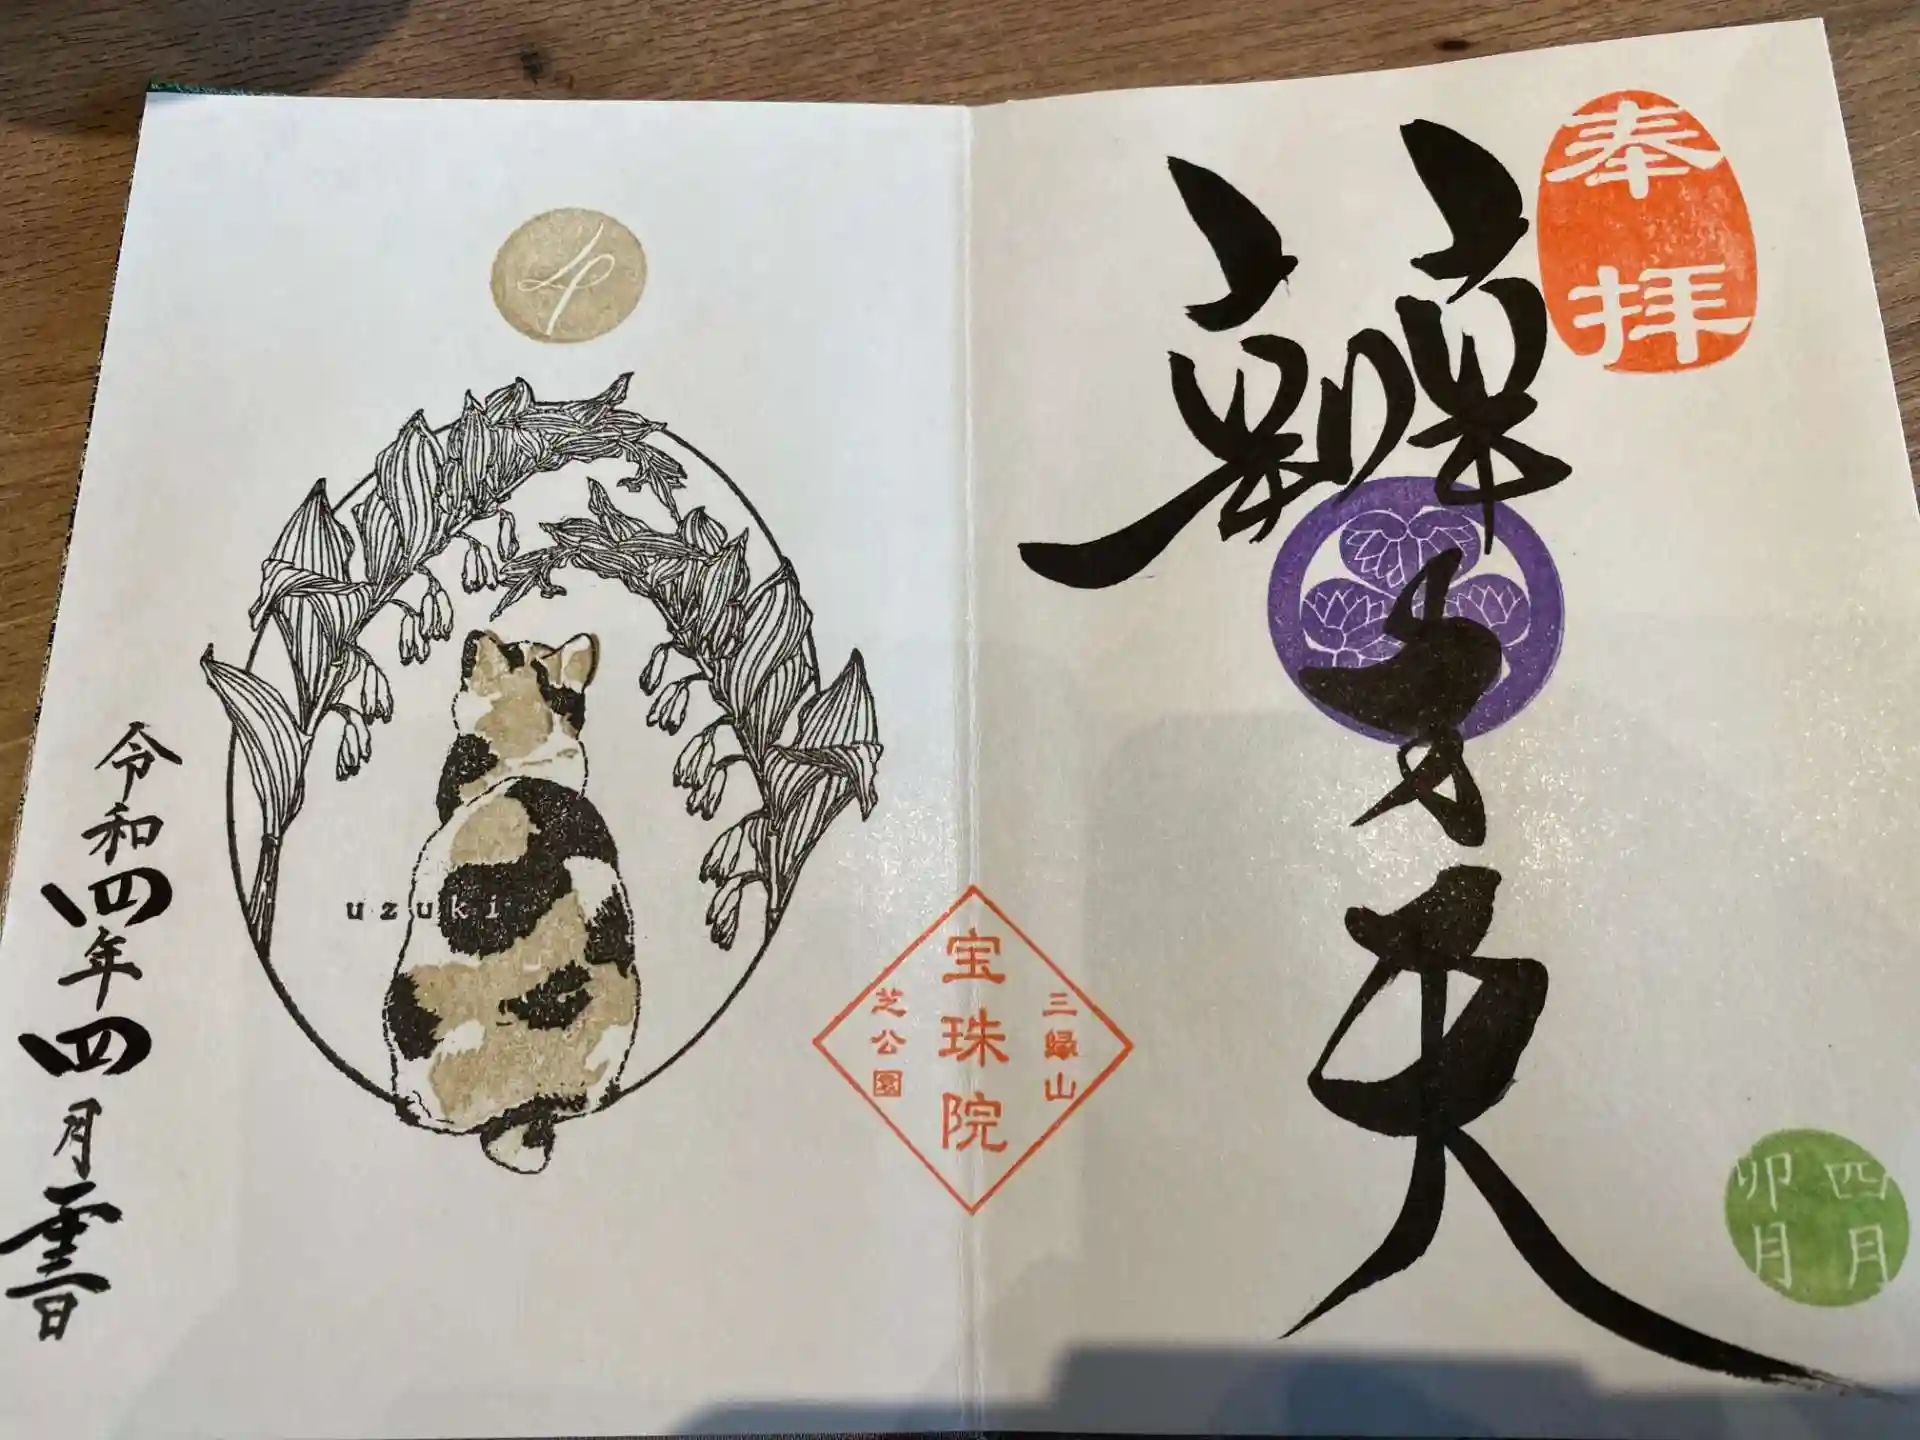 奉拝
辨才天
四月
卯月
三縁山
宝珠院
芝公園
uzuki
令和四年四月日